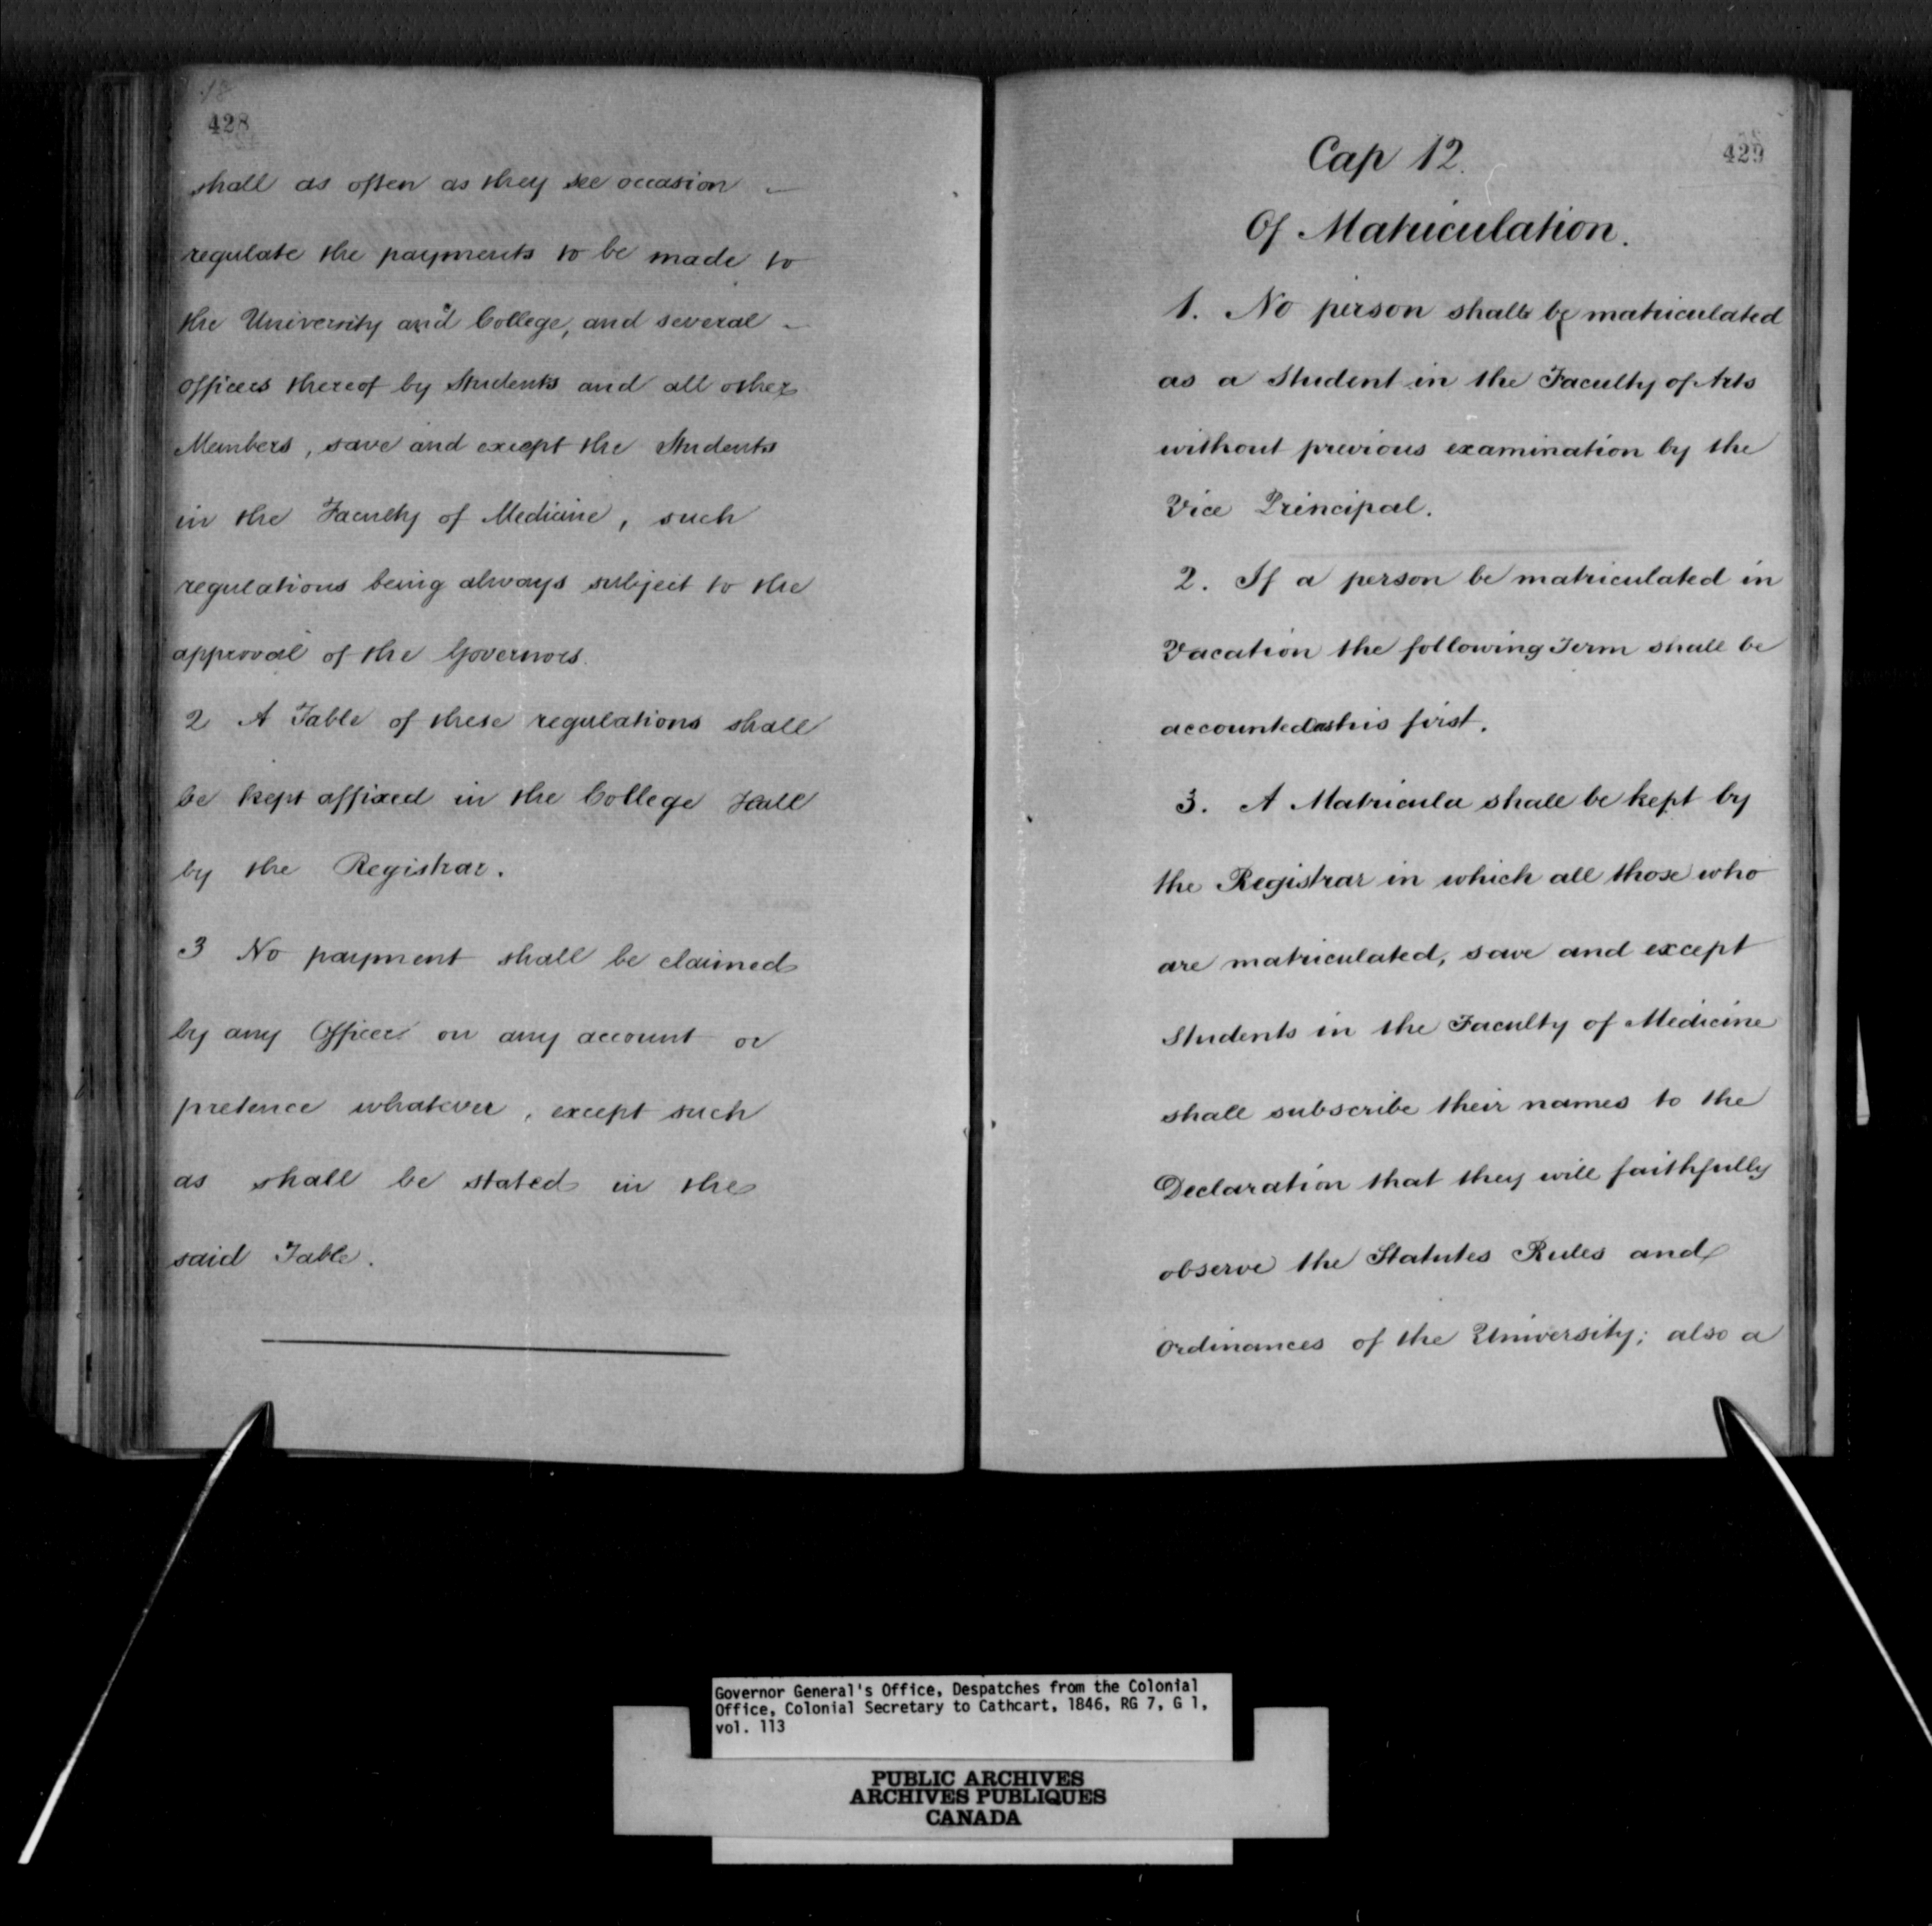 428
shall as often as they see occasion
regulate the payments to be made to
the University and College, and several
officers thereof by Students and all other
Members, save and except the Students
in the Faculty of Medicine, such
regulations being always subject to the
approval of the Governors.
2 A Table of these regulations shall
be kept affixed in the College Hall
by the Registrar.
3 No payment shall be claimed
by any Officer on any account or
pretence whatever, except such
as shall be stated in the
said Table.
429
Cap 12.
Of Matriculation.
1. No person shall be matriculated
as a Student in the Faculty of Arts
without previous examination by the
Vice Principal.
2. If a person be matriculated in
Vacation the following Term shall be
accounted as his first.
3. A Matricula shall be kept by
the Registrar in which all those who
are matriculated, save and except
Students in the Faculty of Medicine
shall subscribe their names to the
Declaration that they will faithfully
observe the Statutes Rules and
Ordinances of the University; also a
Governor General's Office, Despatches from the Colonial
Office, Colonial Secretary to Cathcart, 1846, RG 7, G 1,
vol. 113
PUBLIC ARCHIVES
ARCHIVES PUBLIQUES
CANADA